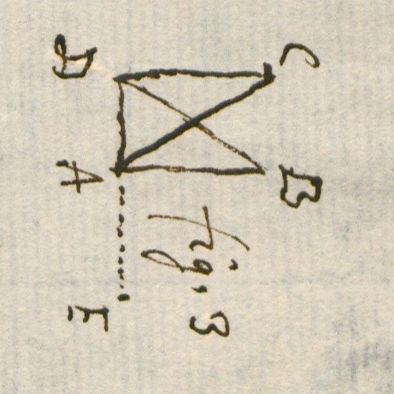 D
C
A
B
E
fig. 3